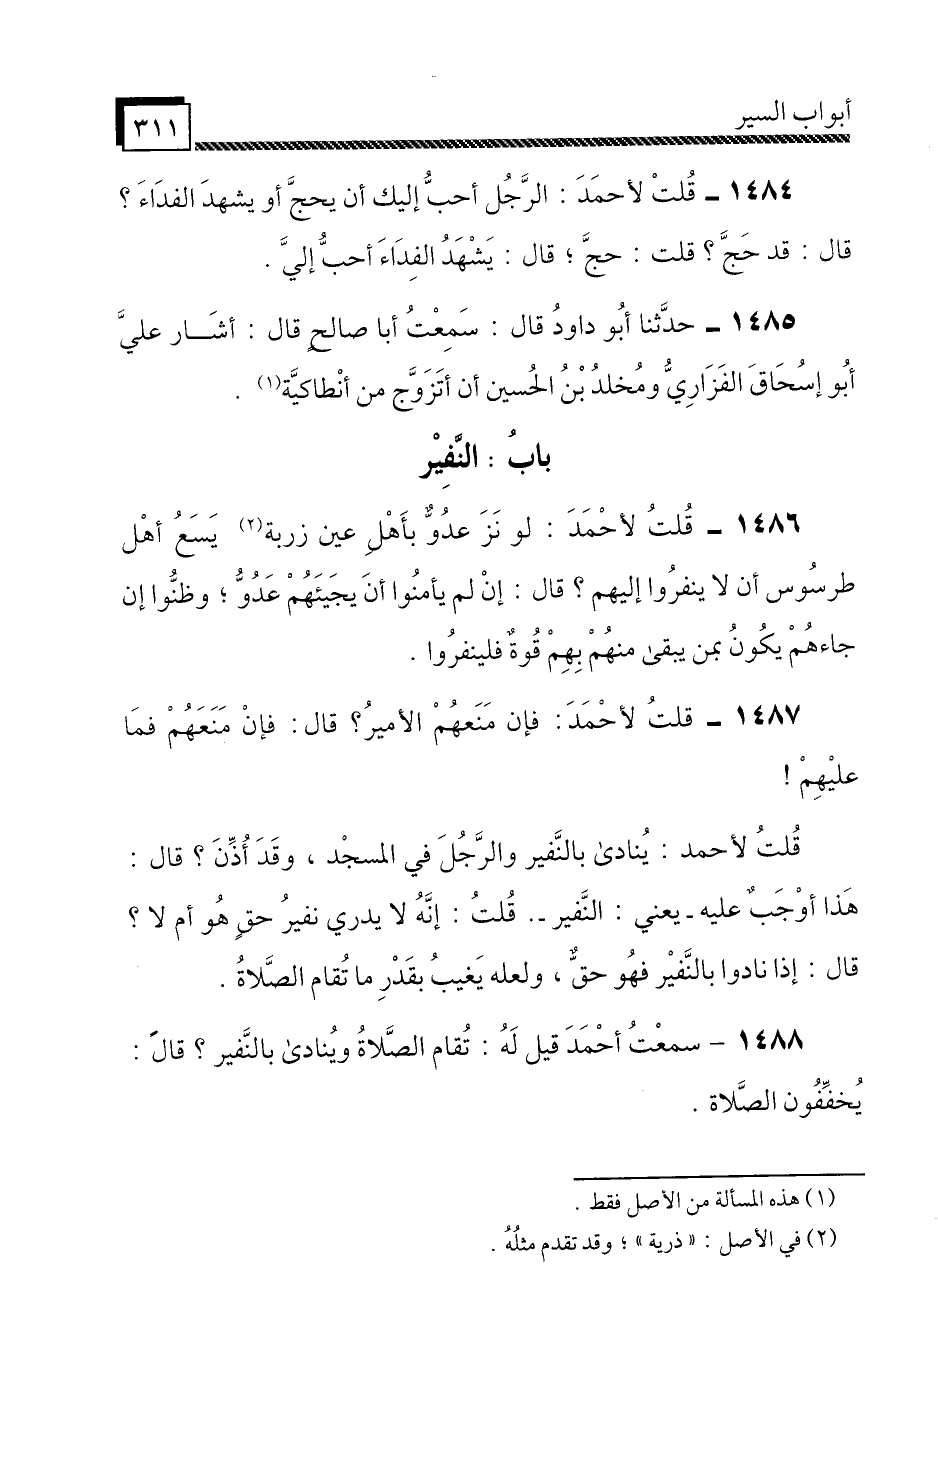 أبواب السير
٣١١
١٤٨٤ ـ قُلتْ لأحمَدَ : الرَّجُل أحبُّ إليك أن يحجَّ أو يشهدَ الفدَاءَ ؟
قال : قد حَجَّ ؟ قلت : حجَّ ؛ قال : يَشْهَدُ الفِدَاءَ أحبُّ إليَّ .
١٤٨٥ ـ حدثَّنا أبُو داودُ قال : سَمِعْتُ أبا صالحٍ قال : أشَـــار عليَّ
أبُو إسُحَاقَ الفَزَاريُّ ومُخلدُ بْنُ الحُسين أن أتَزَوَّج من أنْطاكيَّة(١) .
بابُ : النَّفِيْر
١٤٨٦ ـ قُلتُ لأحْمَدَ : لو نَزَ عدُوٌّ بأَهْلِ عين زربة(٢) يَسَعُ أهْل
طرسُوس أن لا ينفرُوا إليهم ؟ قال : إنْ لم يأمنُوا أنَ يجيَئَهُمْ عَدُوٌّ ؛ وظنُّوا إن
جاءهُمْ يكُونُ بمن يبقىٰ منهُمْ بِهِمْ قُوةٌ فلينفرُوا .
١٤٨٧ ـ قلتُ لأحْمَدَ : فإن مَنَعهُمْ الأميرُ؟ قال : فإنْ مَنَعَهُمْ فمَا
عليْهِمْ !
قُلتُ لأحمد : يُنادىٰ بالنَّفير والرَّجُلَ في المسجدْ ، وقَدَ أُذِّنَ ؟ قال :
هَذا أوْجَبٌ عليه ـ يعني : النَّفير .. قُلتُ : إنَّهُ لا يدري نفيرُ حقٍ هُو أم لا ؟
قال : إذا نادوا بالنَّفيْر فهُو حقٌّ ، ولعله يَغيبُ بقَدْرِ ما تُقام الصَّلاةُ .
١٤٨٨ – سمعْتُ أحْمَدَ قيل لَهُ : تُقام الصَّلاةُ ويُنادىٰ بالنَّفير ؟ قالَ :
يُخفِّفُون الصَّلاة .
(١) هذه المسألة من الأصل فقط .
(٢) في الأصل : «ذرية» ؛ وقد تقدم مثلُهُ .